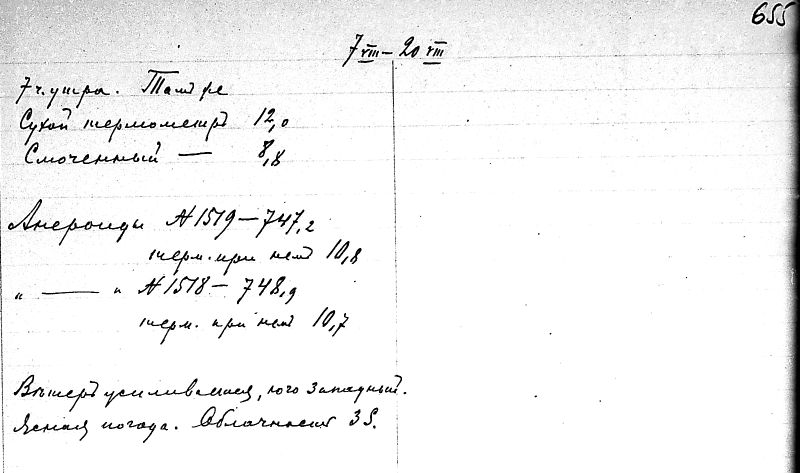 655
7 VIII – 20 VIII
7 ч. утра. Тамъ же
Сухой термометръ 12,0
Смоченный — 8,8
Анероиды № 1519 — 747,2
терм. при немъ 10,8
„ — „ № 1518 — 748,9
терм. при немъ 10,7
Вѣтеръ усиливается, юго западный.
Ясная погода. Облачность 3 S.